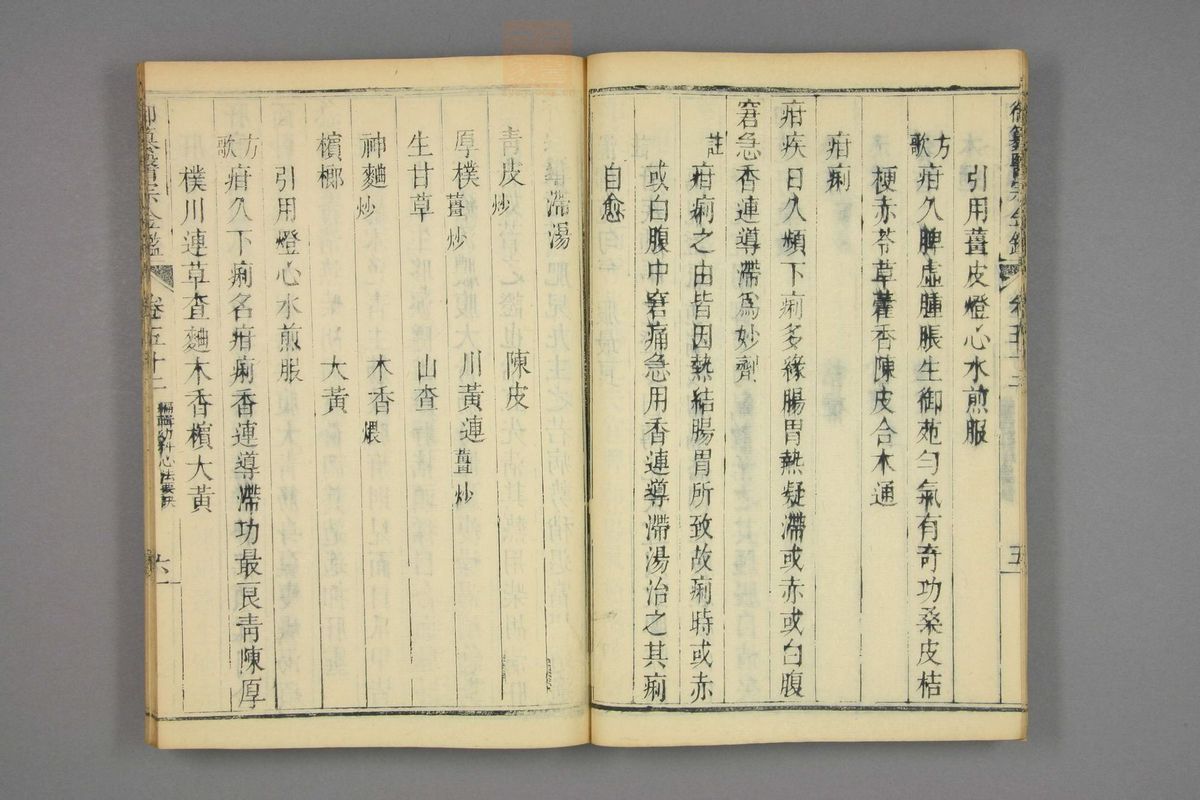 御纂醫宗金鑑 卷五十二 五
引用薑皮燈心水煎服
方歌 疳久脾虛腫脹生御苑勻氣有奇功桑皮桔
梗赤苓草藿香陳皮合木通
疳痢
疳疾日久頻下痢多緣腸胃熱凝滯或赤或白腹
窘急香連導滯爲妙劑
註 疳痢之由皆因熱結腸胃所致故痢時或赤
或白腹中窘痛急用香連導滯湯治之其痢
自愈
滯湯
青皮炒 陳皮
厚樸薑炒 川黃連薑炒
生甘草 山查
神麯炒 木香煨
檳榔 大黃
引用燈心水煎服
方歌 疳久不下痢名疳痢香連導滯功最良青陳厚
樸川連草查麯木香檳大黃
御纂醫宗金鑑 卷五十二 編輯幼科心法要訣 六